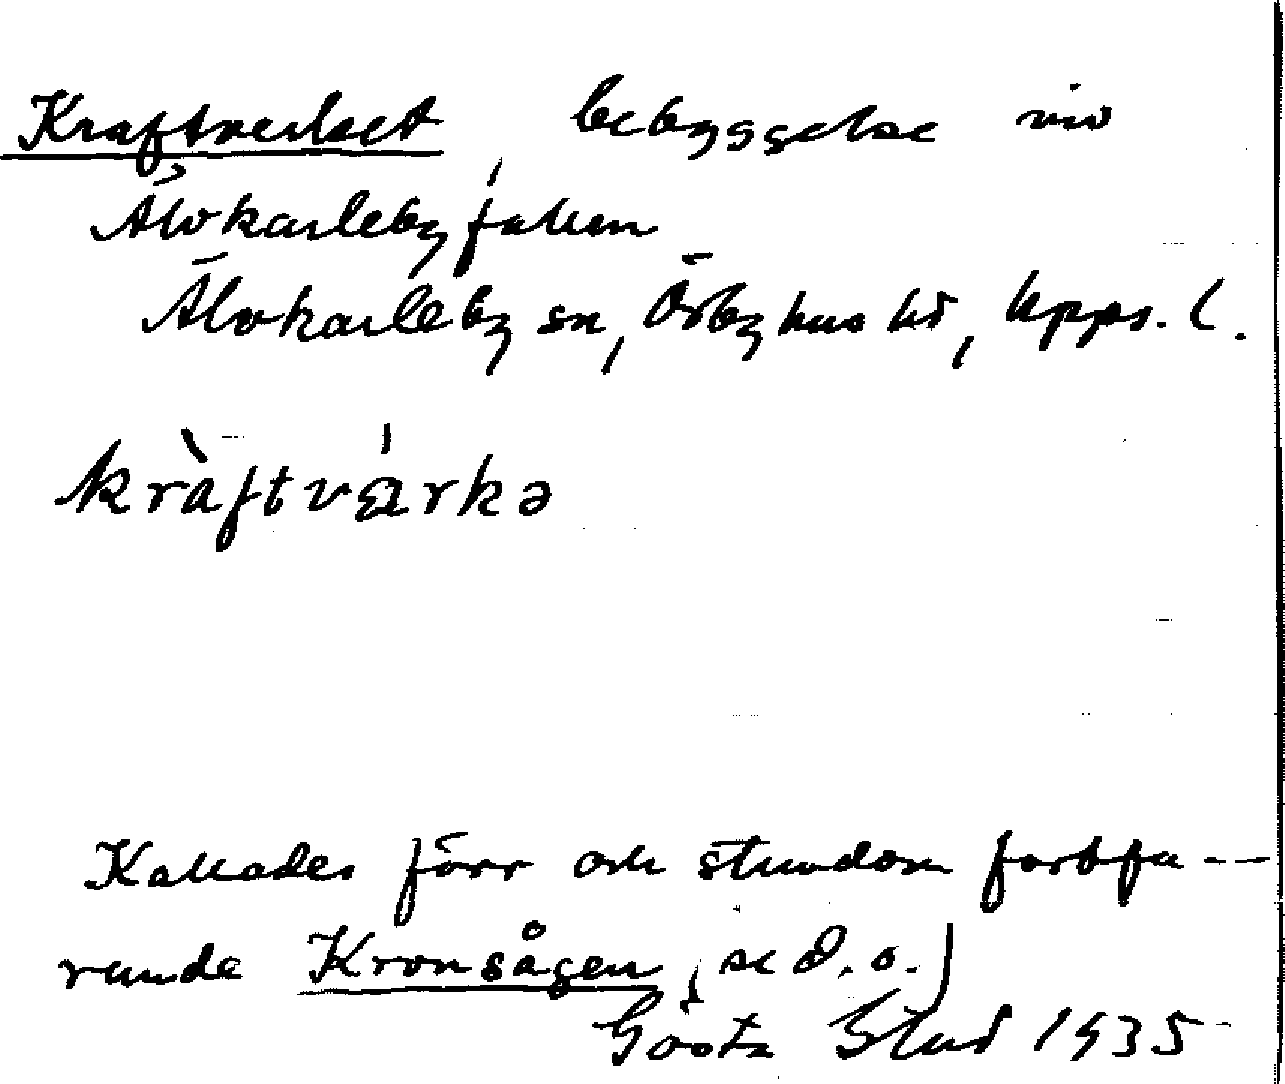 Kraftverket bebyggelse vid
Älvkarlebyfallen
Älvkarleby sn, Örbyhus hd, Upps. l.
kràftvä́rkə
Kallades förr och stundom fortfa--
rande Kronsågen, se d. o.)
Gösta
1935